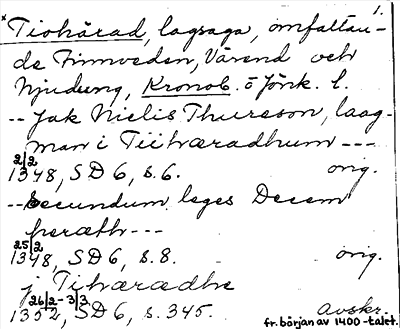 1.
*Tiohärad, lagsaga, omfattan-
de Finnveden, Värend och
Njudung, Kronob. o Jönk. l.
-- Jak Nielis Thureson, laag-
man i Tiihæradhum ---
2/2
1348, SD 6, s. 6. orig.
-- Secundum leges Decem
hæreth ---
25/2
1348, SD 6, s. 8. orig.
j Tihæradhe
26/2-3/3
1352, SD 6, s. 345. avskr.
fr. början av 1400-talet.